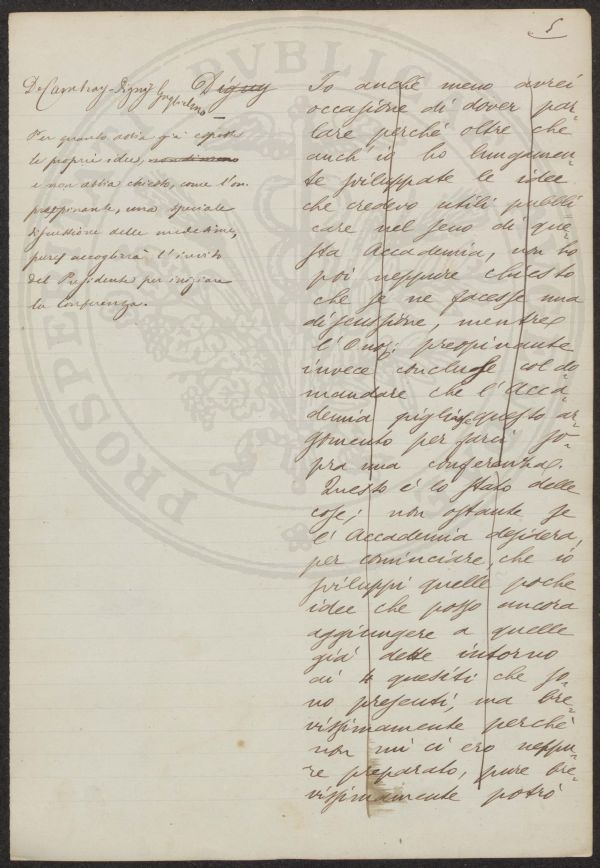 5
De Cambray-Digny Guglielmo Digny
Per quanto abbia già esposte
le proprie idee,
e non abbia chiesto, come l'on.
preopinante, una speciale
discussione delle medesime,
pure accoglierà l'invito
del Presidente per iniziare
la conferenza.
Io anche meno avrei
occasione di dover par-
lare perché oltre che
anch'io ho lungamen-
te sviluppate le idee
che credevo utili pubbli
care nel seno di que-
sta Accademia, non ho
poi neppure chiesto
che se ne facesse una
discussione, mentre
l'Onor. preopinante
invece concluse col do
mandare che l'Acca-
demia pigliasse questo ar-
gomento per farci so-
pra una conferenza.
Questo è lo stato delle
cose; non ostante se
l'Accademia desidera,
per cominciare, che io
sviluppi quelle poche
idee che posso ancora
aggiungere a quelle
già dette intorno
ai 4 quesiti che so-
no presenti, ma bre-
vissimamente perché
non mi ci ero neppu-
re preparato, pure bre-
vissimamente potrò
PVBLICA
PROSPE